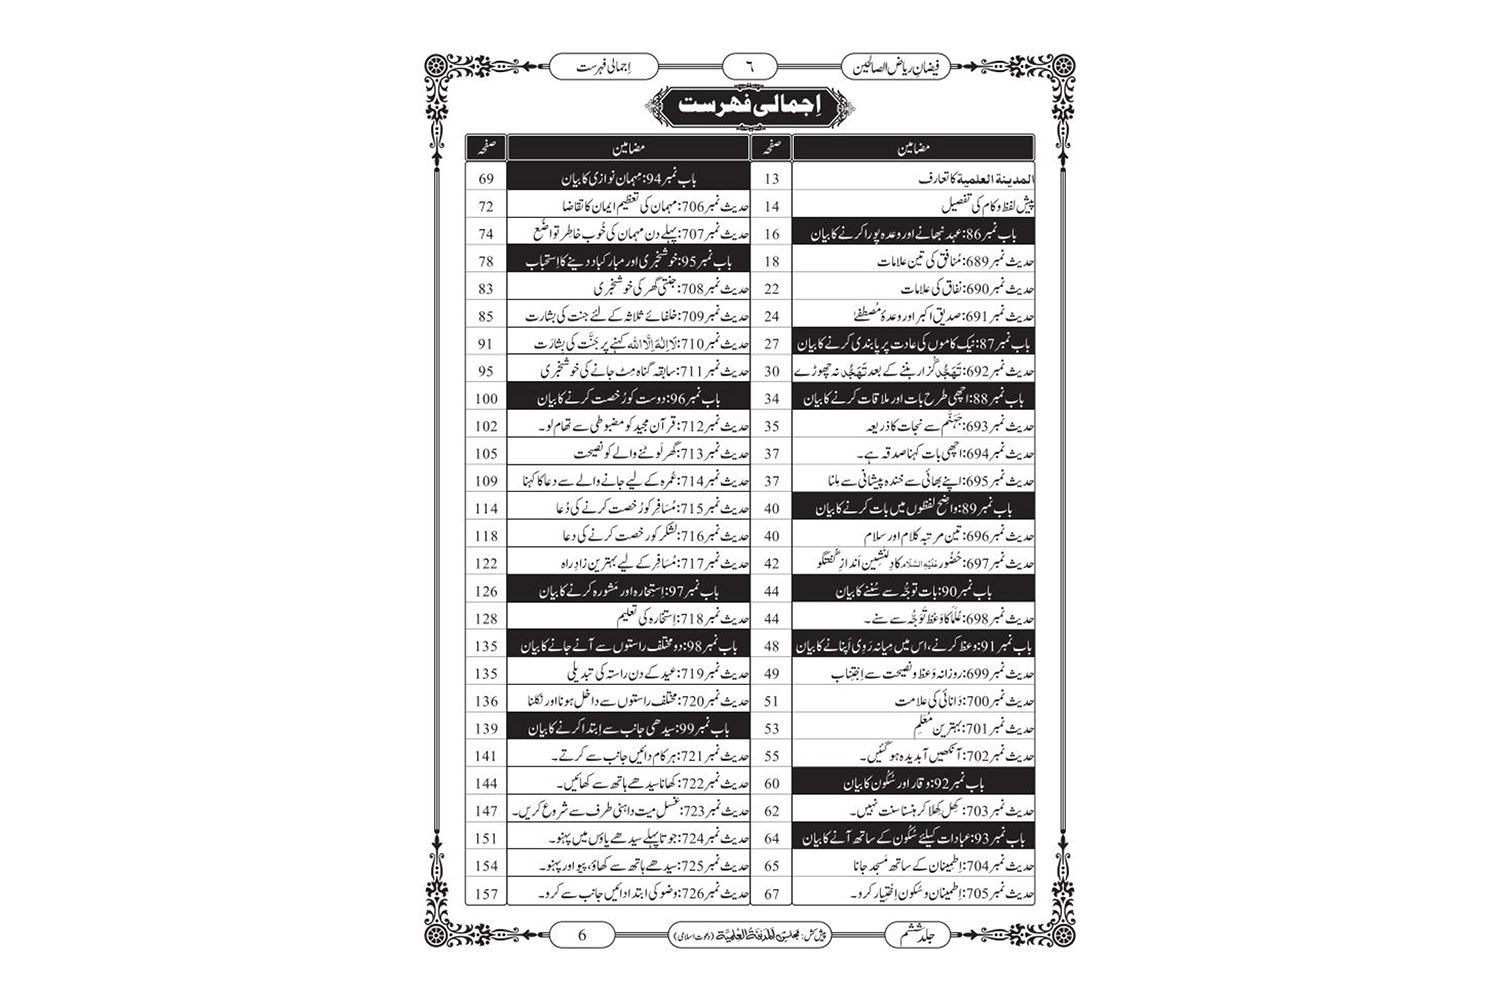 فیضانِ ریاض الصالحین
٦
اِجمالی فہرست
اِجمالی فہرست
مضامین صفحہ
المدینۃ العلمیۃ کا تعارف 13
پیش لفظ و کام کی تفصیل 14
باب نمبر 86: عہد نبھانے اور وعدہ پورا کرنے کا بیان 16
حدیث نمبر 689: مُنافق کی تین علامات 18
حدیث نمبر 690: نفاق کی علامات 22
حدیث نمبر 691: صدیق اکبر اور وعدۂ مُصطفےٰ 24
باب نمبر 87: نیک کاموں کی عادت پر پابندی کرنے کا بیان 27
حدیث نمبر 692: تَہَجُّد گُزار بننے کے بعد تَہَجُّد نہ چھوڑے 30
باب نمبر 88: اچھی طرح بات اور ملاقات کرنے کا بیان 34
حدیث نمبر 693: جَہَنَّم سے نجات کا ذریعہ 35
حدیث نمبر 694: اچھی بات کہنا صدقہ ہے۔ 37
حدیث نمبر 695: اپنے بھائی سے خندہ پیشانی سے مِلنا 37
باب نمبر 89: واضح لفظوں میں بات کرنے کا بیان 40
حدیث نمبر 696: تین مرتبہ کلام اور سلام 40
حدیث نمبر 697: حُضُور عَلَیْہِ السَّلَام کا دِلنشین اَندازِ گُفتگو 42
باب نمبر 90: بات توجُّہ سے سُننے کا بیان 44
حدیث نمبر 698: عُلَما کا وَعظ تَوَجُّہ سے سنے۔ 44
باب نمبر 91: وعظ کرنے، اس میں مِیانہ رَوِی اَپنانے کا بیان 48
حدیث نمبر 699: روزانہ وَعظ و نصیحت سے اِجتِناب 49
حدیث نمبر 700: دَانائی کی علامت 51
حدیث نمبر 701: بہترین مُعلِّم 53
حدیث نمبر 702: آنکھیں آبدیدہ ہو گئیں۔ 55
باب نمبر 92: وقار اور سُکُون کا بیان 60
حدیث نمبر 703: کِھل کِھلا کر ہنسنا سنت نہیں۔ 62
باب نمبر 93: عبادات کیلئے سُکُون کے ساتھ آنے کا بیان 64
حدیث نمبر 704: اِطمینان کے ساتھ مَسجد جانا 65
حدیث نمبر 705: اِطمینان و سُکون اِختِیار کرو۔ 67
مضامین صفحہ
باب نمبر 94: مہمان نوازی کا بیان 69
حدیث نمبر 706: مہمان کی تعظیم ایمان کا تقاضا 72
حدیث نمبر 707: پہلے دن مہمان کی خُوب خاطِر تواضُع 74
باب نمبر 95: خوشخبری اور مبارکباد دینے کا اِستحباب 78
حدیث نمبر 708: جنتی گھر کی خوشخبری 83
حدیث نمبر 709: خلفائے ثلاثہ کے لئے جنت کی بشارت 85
حدیث نمبر 710: لَا اِلٰہَ اِلَّا اللہ کہنے پر جَنَّت کی بشارَت 91
حدیث نمبر 711: سابقہ گناہ مِٹ جانے کی خوشخبری 95
باب نمبر 96: دوست کو رُخصت کرنے کا بیان 100
حدیث نمبر 712: قرآن مجید کو مضبوطی سے تھام لو۔ 102
حدیث نمبر 713: گھر لَوٹنے والے کو نصیحت 105
حدیث نمبر 714: عُمرہ کے لیے جانے والے سے دعا کا کہنا 109
حدیث نمبر 715: مُسَافِر کو رُخصت کرنے کی دُعا 114
حدیث نمبر 716: لشکر کو رخصت کرنے کی دعا 118
حدیث نمبر 717: مُسَافِر کے لیے بہترین زادِ راہ 122
باب نمبر 97: اِستِخارہ اور مَشورہ کرنے کا بیان 126
حدیث نمبر 718: اِستخارہ کی تعلیم 128
باب نمبر 98: دو مختلف راستوں سے آنے جانے کا بیان 135
حدیث نمبر 719: عید کے دن راستہ کی تبدیلی 135
حدیث نمبر 720: مختلف راستوں سے داخل ہونا اور نکلنا 136
باب نمبر 99: سیدھی جانب سے اِبتدا کرنے کا بیان 139
حدیث نمبر 721: ہر کام دائیں جانب سے کرتے۔ 141
حدیث نمبر 722: کھانا سیدھے ہاتھ سے کھائیں۔ 144
حدیث نمبر 723: غسلِ میت داہنی طرف سے شروع کریں۔ 147
حدیث نمبر 724: جوتا پہلے سیدھے پاؤں میں پہنو۔ 151
حدیث نمبر 725: سیدھے ہاتھ سے کھاؤ، پیو اور پہنو۔ 154
حدیث نمبر 726: وضو کی ابتدا دائیں جانب سے کرو۔ 157
جلد ششم
پیش کش: مجلس المدینۃ العلمیۃ (دعوت اسلامی)
6